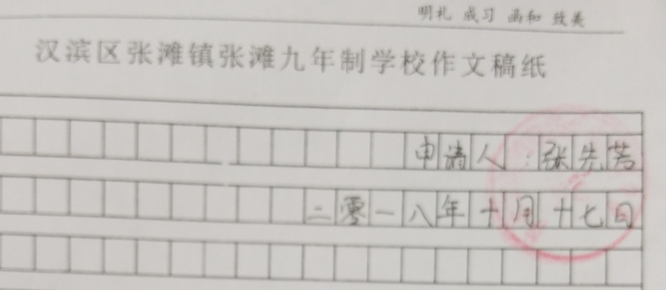 明礼 成习 函和 致美
汉滨区张滩镇张滩九年制学校作文稿纸
申请人：张先芳
二零一八年十月十七日